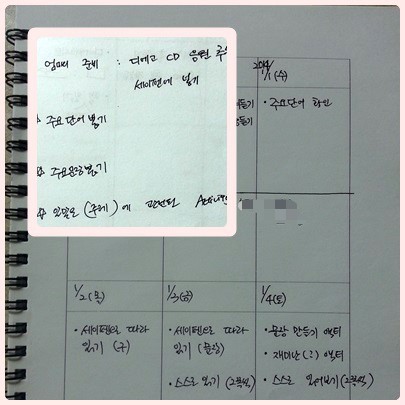 엄마의 준비 : 디에고 CD 음원
세이펜에 넣기
주요단어 뽑기
주요문장 뽑기
(주제)에 관련된
2014
1/1 (수)
· 주요단어 확인
1/2 (목)
· 세이펜으로 따라
읽기 (구)
1/3 (금)
· 세이펜으로 따라
읽기 (문장)
· 스스로 읽기 (2쪽씩)
1/4 (토)
· 문장 만들기 액티
· 재미난 (?) 액티
· 스스로 읽어보기 (2쪽씩)